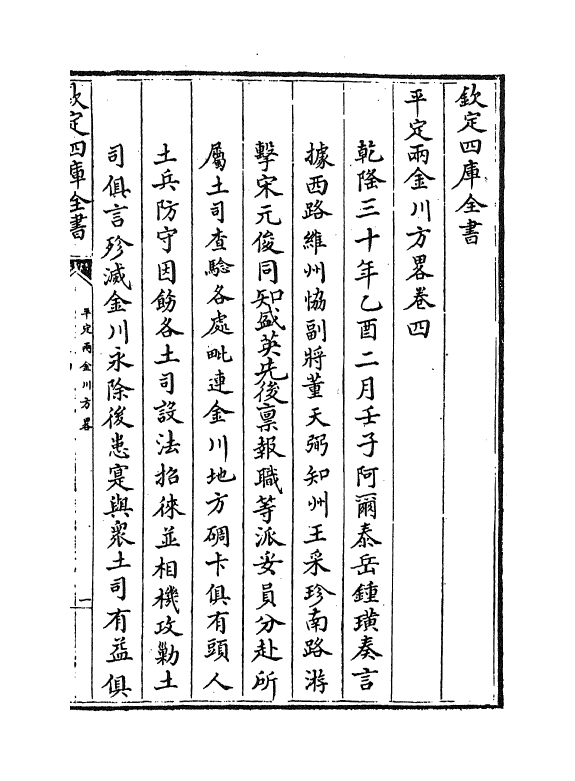 欽定四庫全書
平定兩金川方畧卷四
乾隆三十年乙酉二月壬子阿爾泰岳鍾璜奏言
據西路維州協副將董天弼知州王采珍南路游
擊宋元俊同知盛英先後稟報職等派妥員分赴所
屬土司查驗各處毗連金川地方碉卡俱有頭人
土兵防守因飭各土司設法招徠並相機攻勦土
司俱言殄滅金川永除後患寔與衆土司有益俱
欽定四庫全書
平定兩金川方畧
一